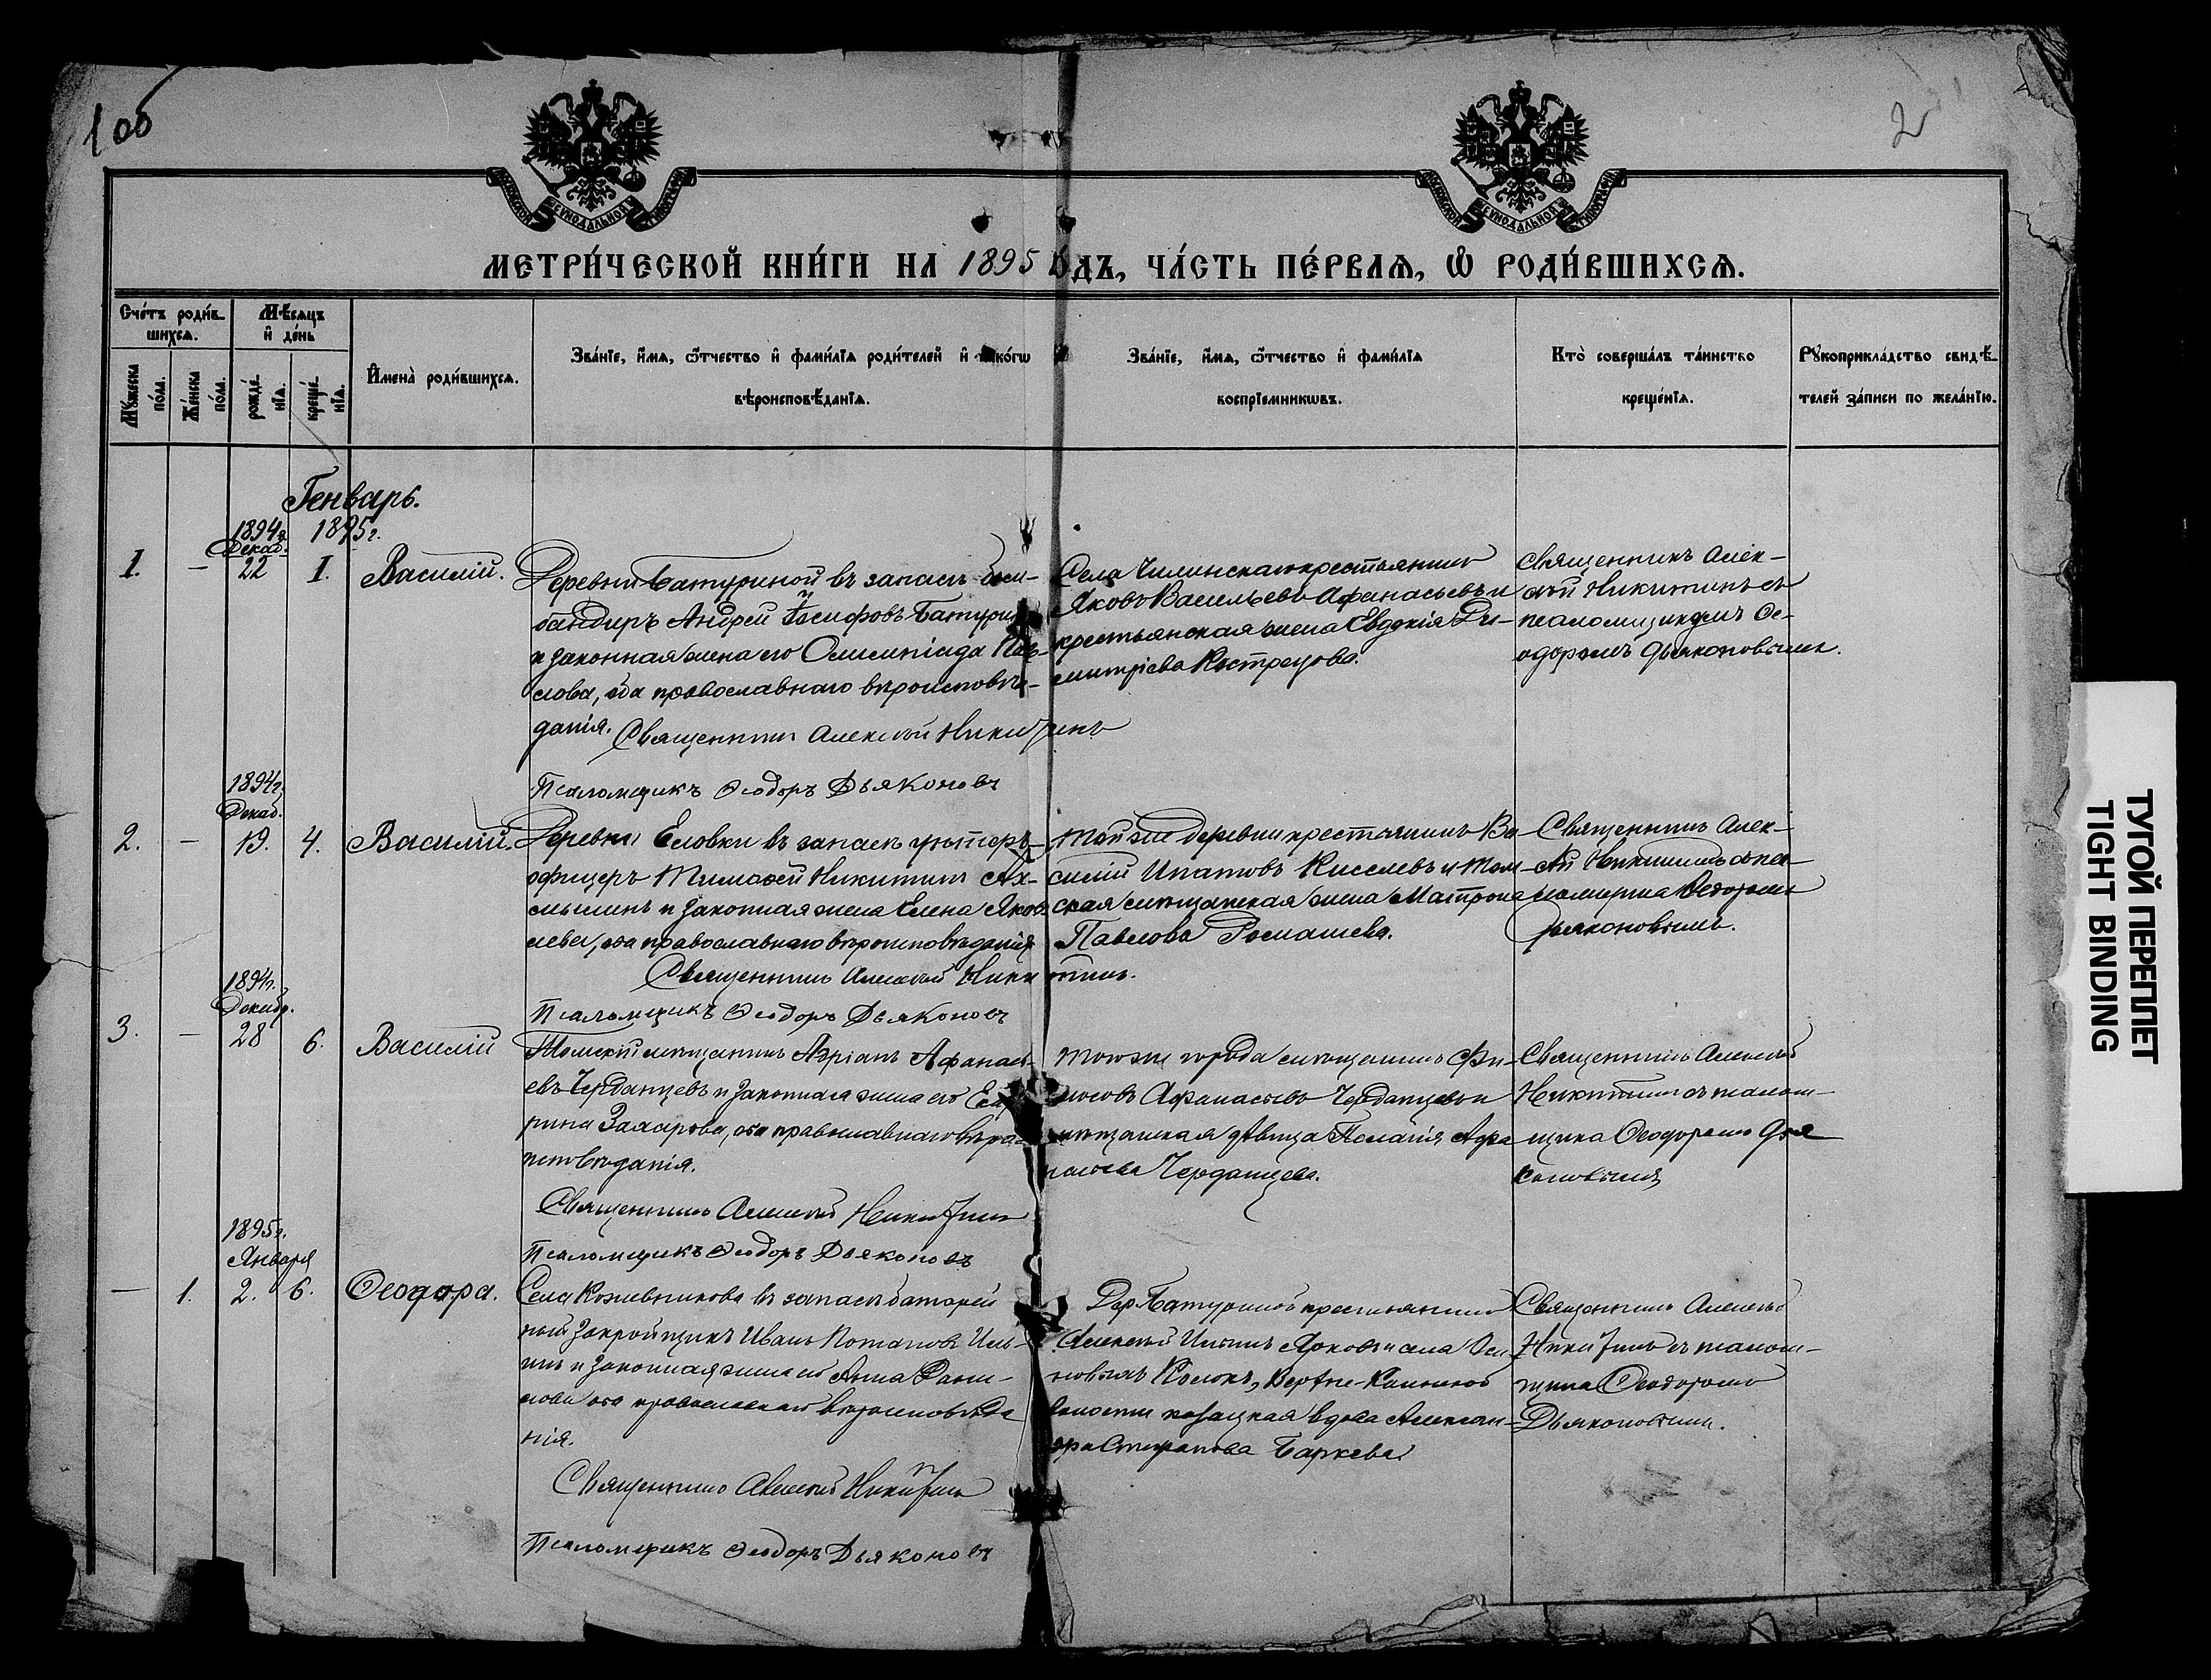 1 об
2
МОСКОВСКОЙ СѴНОДАЛЬНОЙ ТИПОГРАФІИ
МОСКОВСКОЙ СѴНОДАЛЬНОЙ ТИПОГРАФІИ
МЕТРИ́ЧЕСКОЙ КНИ́ГИ НА 1895 ГО́ДЪ, ЧА́СТЬ ПЕ́РВАѦ, Ѡ҆ РОДИ́ВШИХСѦ.
Сче́тъ роди́в-
шихсѧ.
Мѣ́сѧцъ
и҆ де́нь
Мꙋ́жеска
по́ла.
Же́нска
по́ла.
рожде́-
нїѧ.
креще́-
нїѧ.
И҆мена̀ роди́вшихсѧ.
Зва́нїе, и҆́мѧ, ѻ҆́тчество и҆ фами́лїѧ роди́телей и҆ како́гѡ
вѣроисповѣ́данїѧ.
Зва́нїе, и҆́мѧ, ѻ҆́тчество и҆ фами́лїѧ
воспрїе́мникѡвъ.
Кто̀ соверша́лъ та́инство
креще́нїѧ.
Рꙋкоприкла́дство свидѣ́-
телей за́писи по жела́нїю.
Генварь.
1894г. 1895г.
Декаб.
1. — 22 1. Василій.
Деревни Батуриной въ запасѣ бом-
бандиръ Андрей Іосифовъ Батуринъ
и законная жена его Олимпіада Пав-
лова, оба православнаго вѣроисповѣ-
данія. Священникъ Алексѣй Никитинъ
Псаломщикъ Ѳеодоръ Дьяконовъ
Села Чилинскаго крестьянинъ
Яковъ Васильевъ Афанасьевъ и
крестьянская жена Евдокія Ди-
митріева Кострецова.
Священникъ Алек-
сѣй Никитинъ съ
псаломщикомъ Ѳе-
одоромъ Дьяконовымъ.
1894г.
Декаб.
2. — 19. 4. Василій.
Деревни Еловки въ запасѣ унтеръ-
офицеръ Тимоѳей Никитинъ
и законная жена Елена Яков-
лева, оба православнаго вѣроисповѣданія
Священникъ Алексѣй Никитинъ.
Псаломщикъ Ѳеодоръ Дьяконовъ
Той же деревни крестьянинъ Ва-
силій Ипатовъ Киселевъ и Том-
ская мѣщанская жена Матрона
Павлова Ромашева.
Священникъ Алек-
сѣй Никитинъ съ пса-
ломщикомъ Ѳеодоромъ
Дьяконовымъ.
1894г.
Декабр.
3. — 28 6. Василій
Томскій мѣщанинъ Адріанъ Афанась-
евъ Черданцевъ и законная жена его Екате-
рина Захарова, оба православнаго вѣро-
исповѣданія.
Священникъ Алексѣй Никитинъ
Псаломщикъ Ѳеодоръ Дьяконовъ
Того же города мѣщанинъ Фи-
Афанасьевъ Черданцевъ и
мѣщанская дѣвица Пелагія Афа-
насьева Черданцева.
Священникъ Алексѣй
Никитинъ съ псалом-
щика Ѳеодоромъ Дья-
коновымъ
1895г.
Января
— 1. 2. 6. Ѳеодора.
Села Кожевникова въ запасѣ батарей
ный закройщикъ Иванъ Потаповъ Иль-
инъ и законная жена его Анна Дани-
лова оба православнаго вѣроисповѣда
нія.
Священникъ Алексѣй Никитинъ
Псаломщикъ Ѳеодоръ Дьяконовъ
Дер. Батуриной крестьянинъ
Алексѣй Ильинъ и села Оси-
новыхъ Колокъ,
волости козацкая вдова Алексан-
дра Степанова
Священникъ Алексѣй
Никитинъ съ псалом-
щика Ѳеодоромъ
Дьяконовымъ.
ТУГОЙ ПЕРЕПЛЕТ
TIGHT BINDING